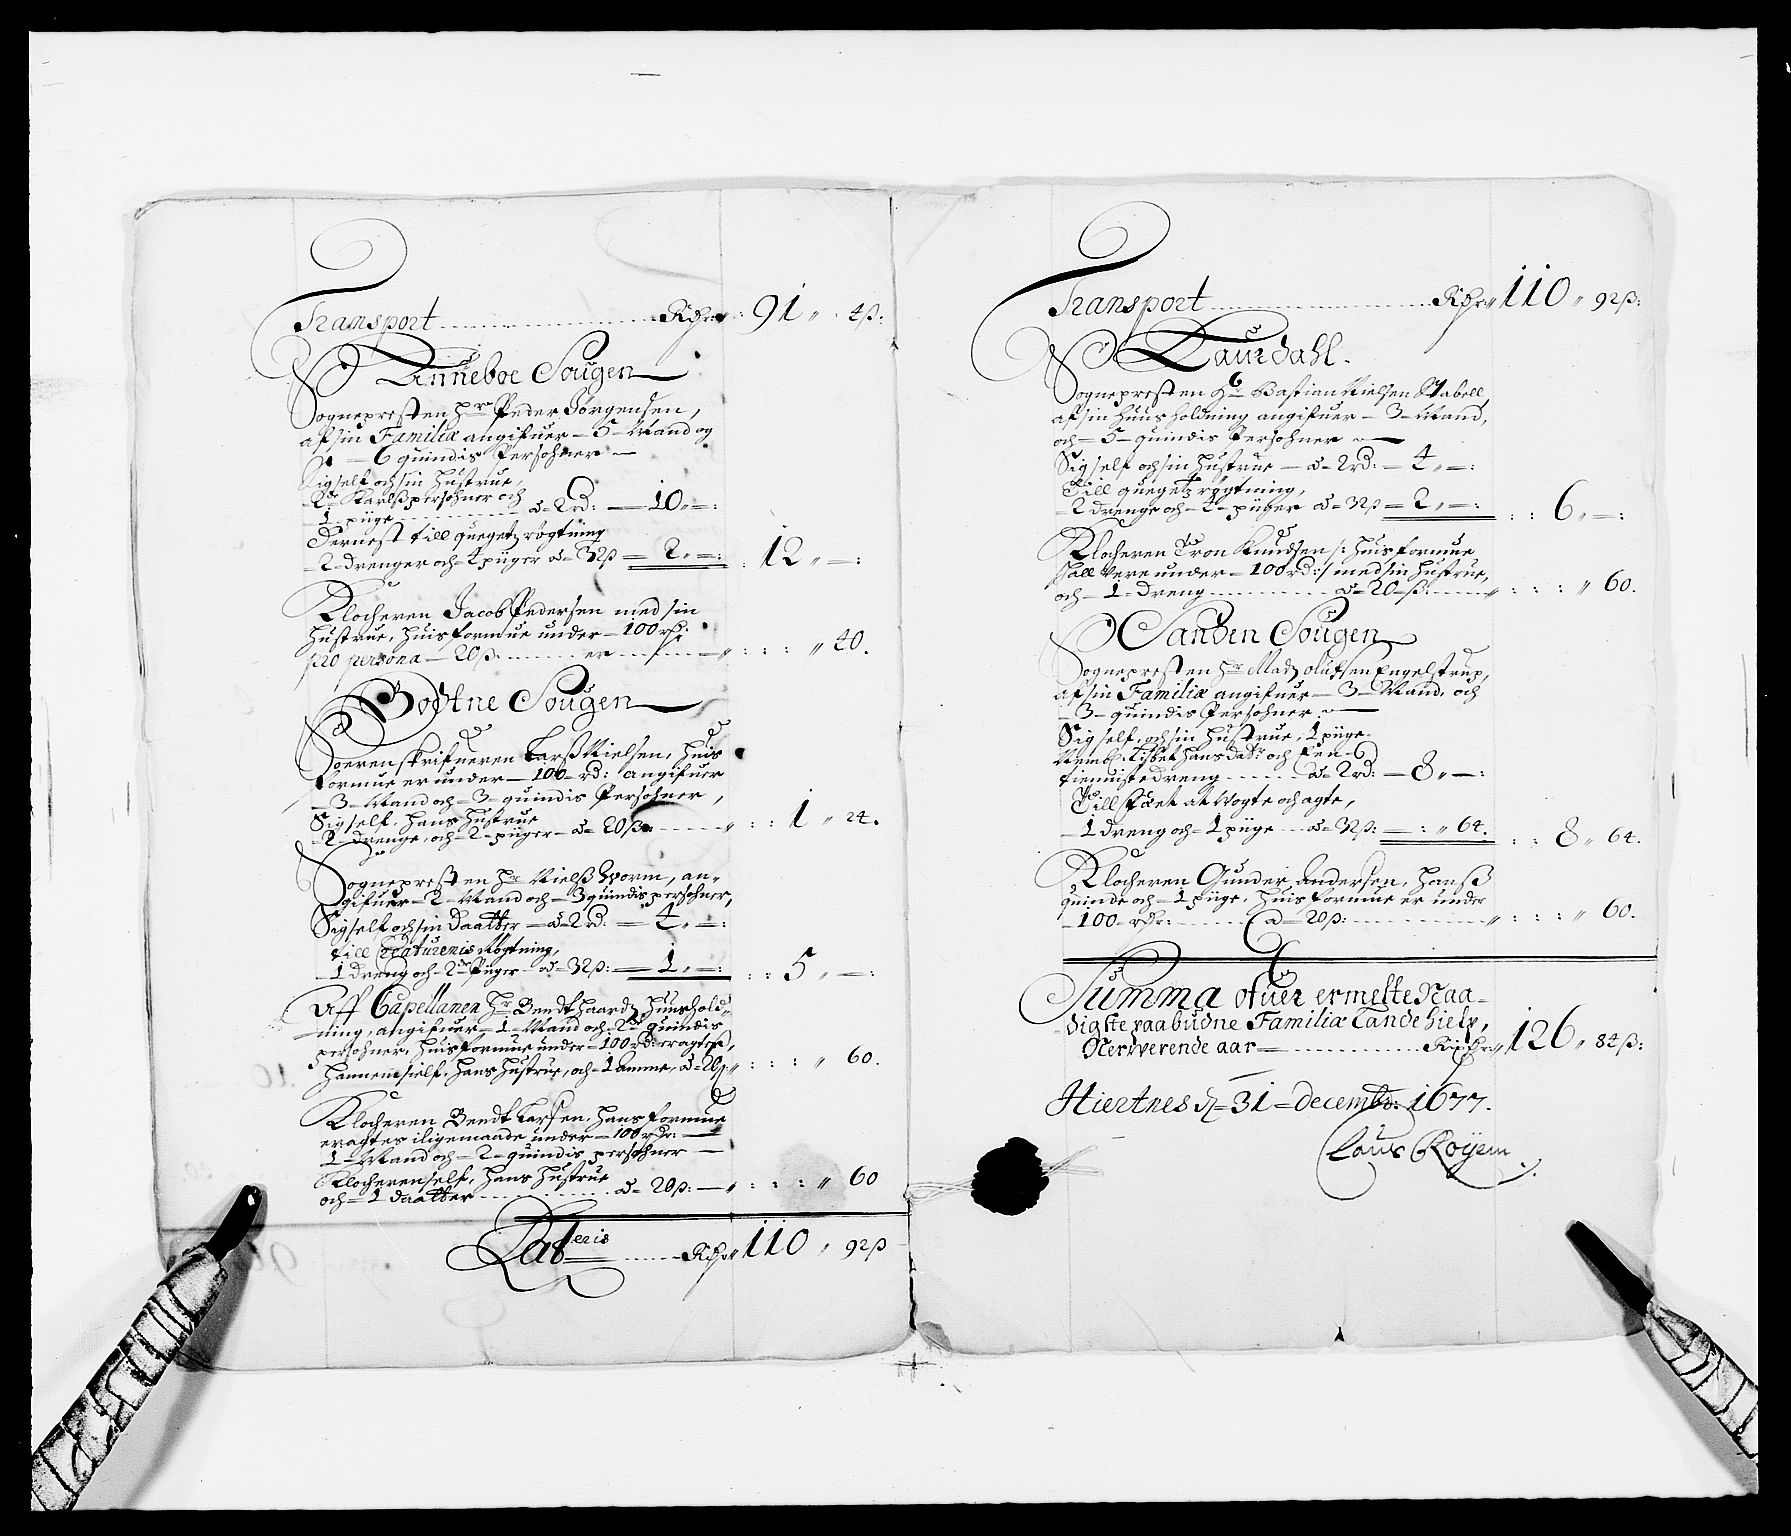 Transport Rdr 91 „ 4ß:
Anneboe Sougen
Sognepresten Hr Peder Jørgensen,
af sin Familiæ angifuer – 5 – Mand og
– 6 quindis Persohner –
Sig self och sin Hustrue,
2 Karlßpersohner och
1 – piige – à – 2 rd: – 10 „ – :
Dernest till quegetz røgtning
– 2 – drenger och – 4 piiger à – 32ß – 2 „ – : 12 „ – :
Klocheren Jacob Pedersen med sin
Hustrue, huis formue under – 100 rdr:
pro persona – 20ß er „ 40.
Bodtne Sougen
Sorenskrifueren Larß Nielsen, huis
formue er under – 100 – rd: angifuer
– 3 – Mand och – 3 – quindis Persohner,
Sig self, hans Hustrue
– 2 – drenge, och – 2 – piiger – à – 20ß: „ 1 „ 24.
Sognepresten Hr Nielß Worm, an-
gifuer – 2 – Mand och – 3 quindis persohner,
Sig self och sin Daatter – à – 2 rd: – 4 „ – :
till Creaturenis Røgtning,
– 1 dreng och – 2 Piiger – à – 32ß: – 1 „ – : 5 „ – :
Aff Capellanen Hr Bendt Haardz Huushold-
ning, angifuer – 1 – Mand och – 2 quindis
persohner, huis formue under – 100 rd: eragtes,
Hannem self, hans Hustrue, och – 1 Amme, à – 20ß: „ 60.
Klocheren Bendt Larsen, hans formue
eragtes iligemaade under – 100 rdr: –
1 – Mand och – 2 – quindis persohner –
Klocheren self, hans Hustrue
och – 1 daatter à – 20ß: – „ 60
Lateris Rdr 110 „ 92ß
Transport Rdr: 110 „ 92ß:
Laurdahl.
Sognepresten Hr Bastian Nielsen Stabell,
af sin Huus holdning angifuer – 3 – Mand,
och – 5 – quindis Persohner –
Sig self och sin Hustrue – à – 2 rd: – 4 „ – :
Till quegetz røgtning,
– 2 drenge och – 4 – piiger à – 32ß – 2 „ – : 6 „ – :
Klocheren Tron Knudsen /: huis formue
skall vere under – 100 rd: / med sin Hustrue,
och – 1 – dreng à – 20 – ß: „ 60.
Sanden Sougen
Sognepresten Hr Madz Olufsen Engelstrup,
af sin Familiæ angifuer – 3 – Mand, och
– 3 – quindis Persohner –
Sig self, och sin Hustrue, 1 piige
Nembl: Lisbet Hansdatr: och Een
tienniste dreng à – 2 rd: – 8 „ – :
Till Fæet at Vogte och agte,
– 1 dreng och – 1 piige à – 32ß: – „ 64. 8 „ 64.
Klocheren Gunder Andersen, hanß
quinde och – 1 piige, huis formue er under
– 100 – rdr: à – 20ß: „ 60.
Summa ofuer ermelte Naa-
digste paabudne Familiæ Lande Hielp,
Nerwerende aar Rixdr: 126 „ 84ß:
Hiertnes d – 31 – decembr: 1677.
Claus Røyem